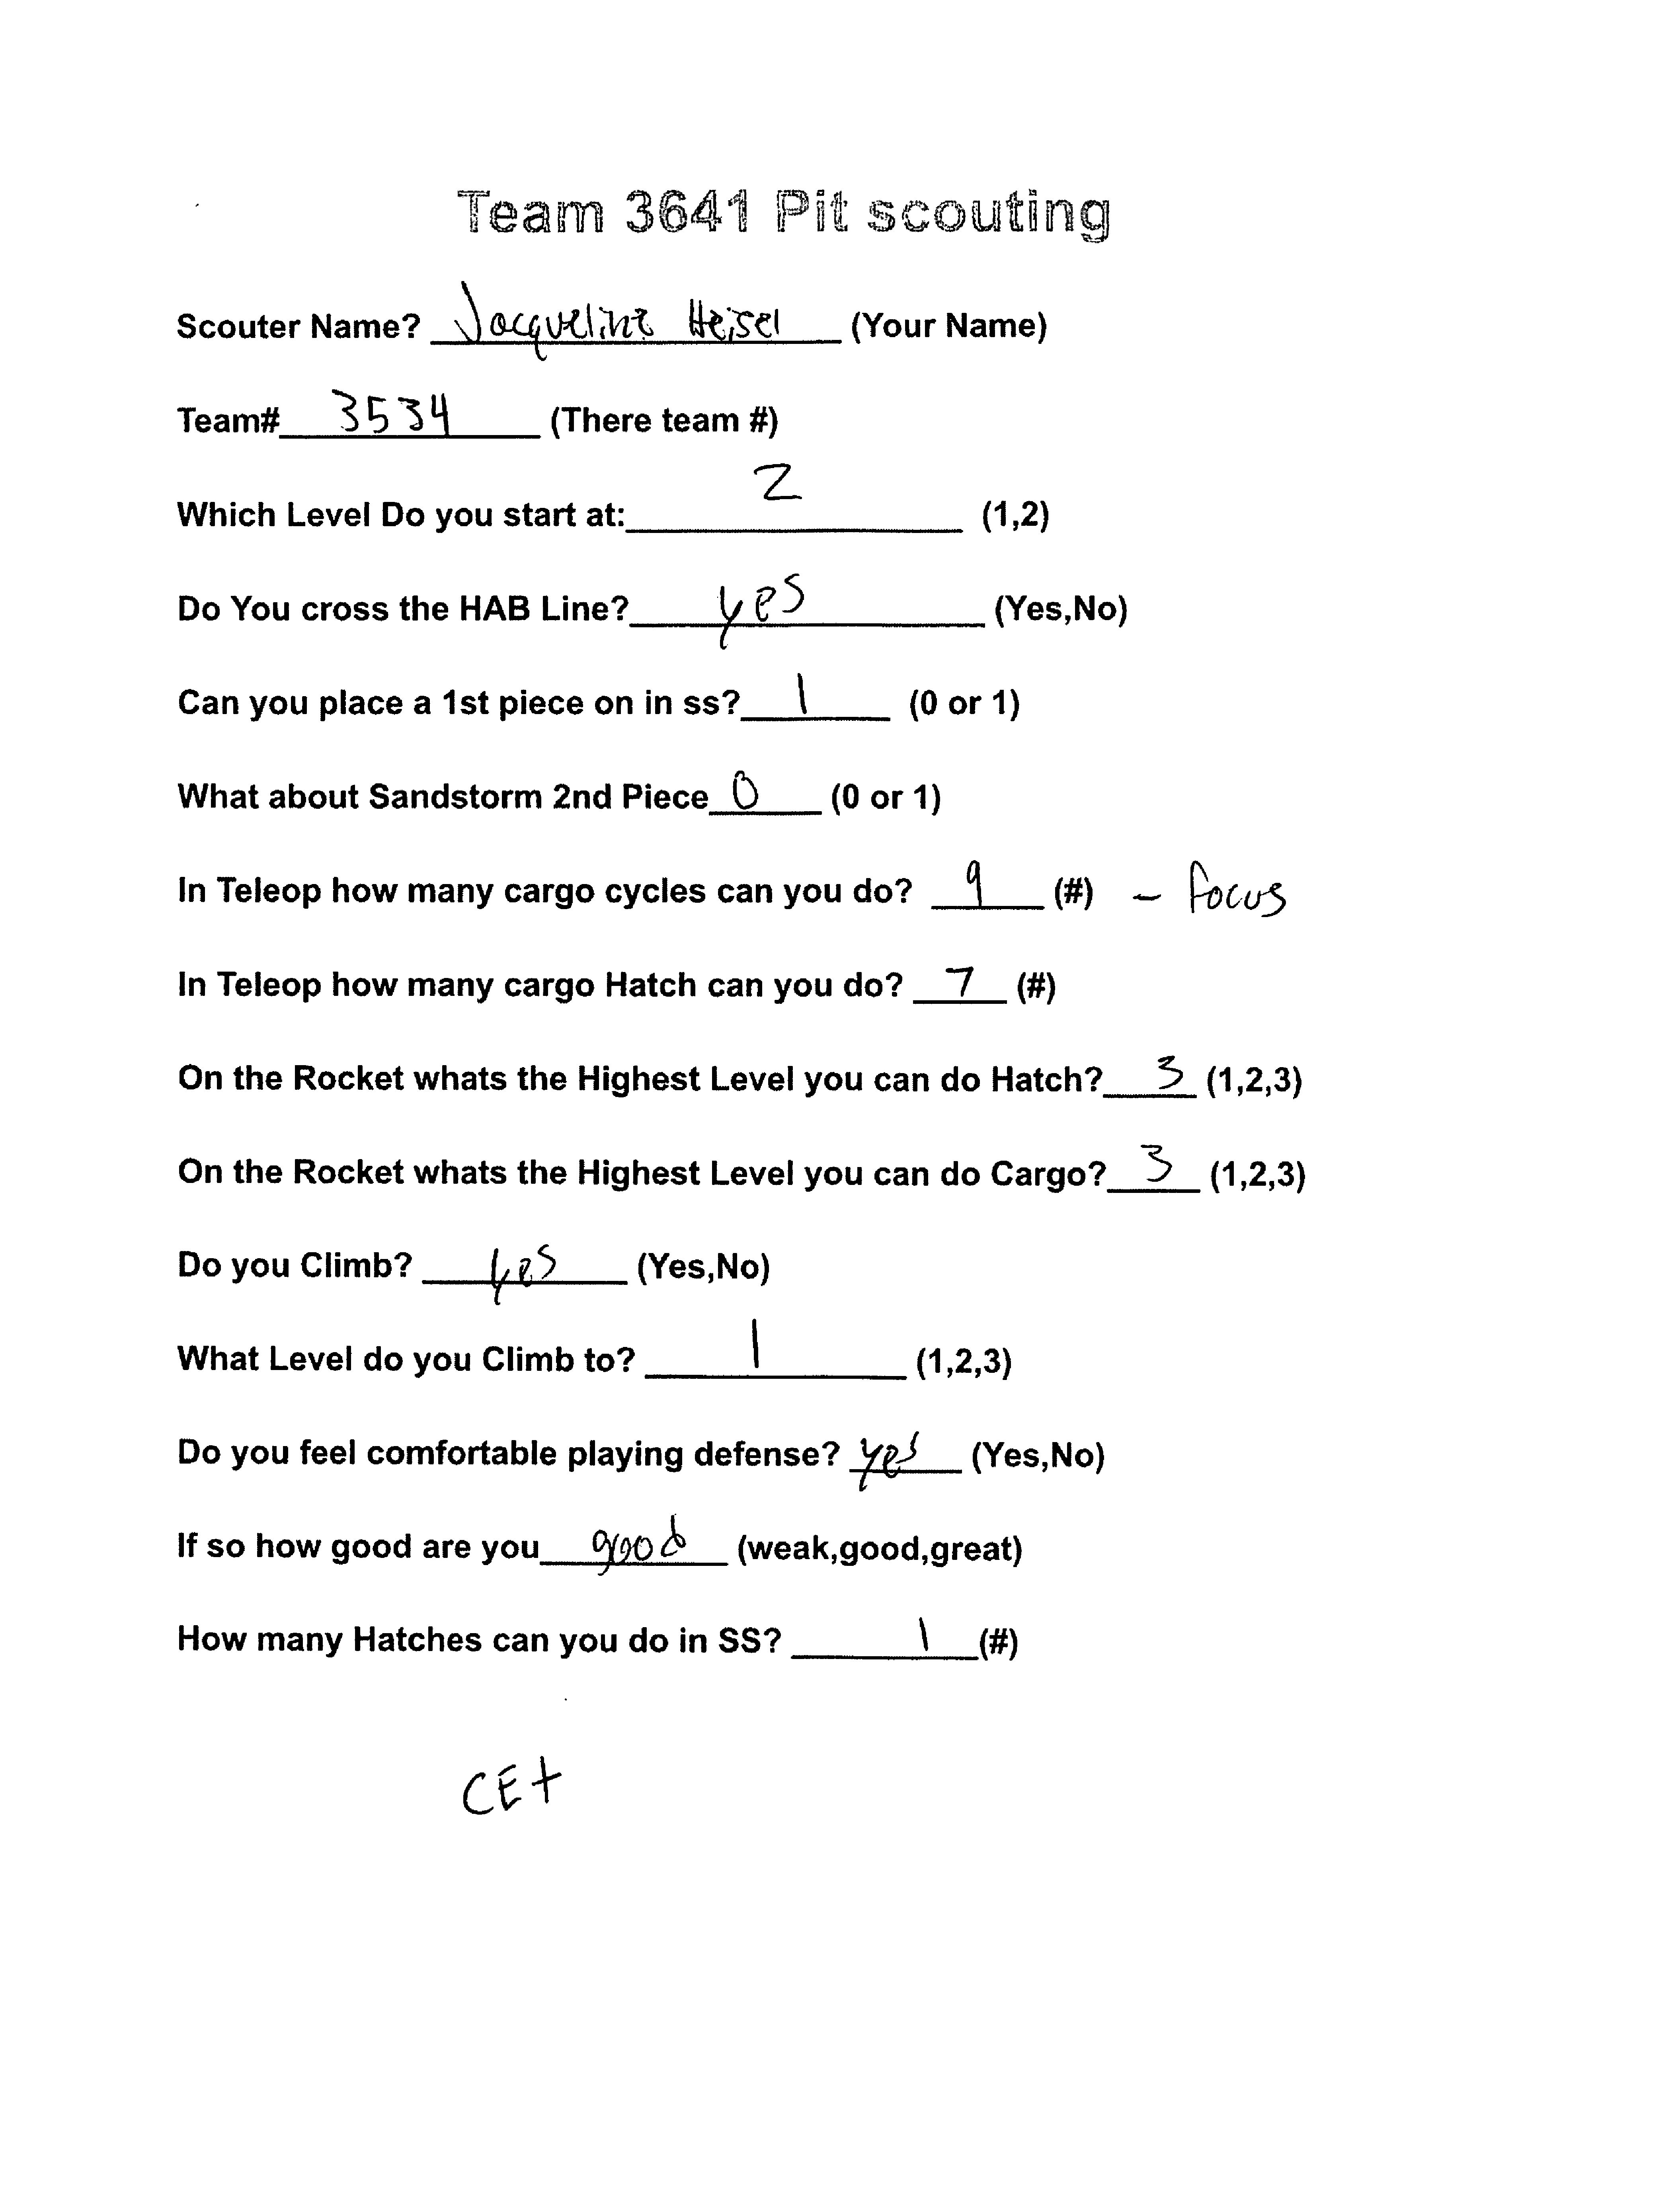 Team 3641 Pit scouting
Scouter Name? Jacqueline Heisel (Your Name)
Team# 3534 (There team #)
Which Level Do you start at: 2 (1,2)
Do You cross the HAB Line? yes (Yes,No)
Can you place a 1st piece on in ss? 1 (0 or 1)
What about Sandstorm 2nd Piece 0 (0 or 1)
In Teleop how many cargo cycles can you do? 9 (#) - focus
In Teleop how many cargo Hatch can you do? 7 (#)
On the Rocket whats the Highest Level you can do Hatch? 3 (1,2,3)
On the Rocket whats the Highest Level you can do Cargo? 3 (1,2,3)
Do you Climb? yes (Yes,No)
What Level do you Climb to? 1 (1,2,3)
Do you feel comfortable playing defense? yes (Yes,No)
If so how good are you good (weak,good,great)
How many Hatches can you do in SS? 1 (#)
CE+